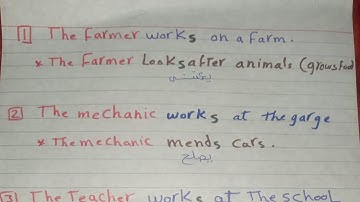 1 The farmer works on a farm.
* The farmer looks after animals (grows food
يعتني
2 The mechanic works at the garge
* The mechanic mends cars.
يصلح
3 The Teacher works at The school